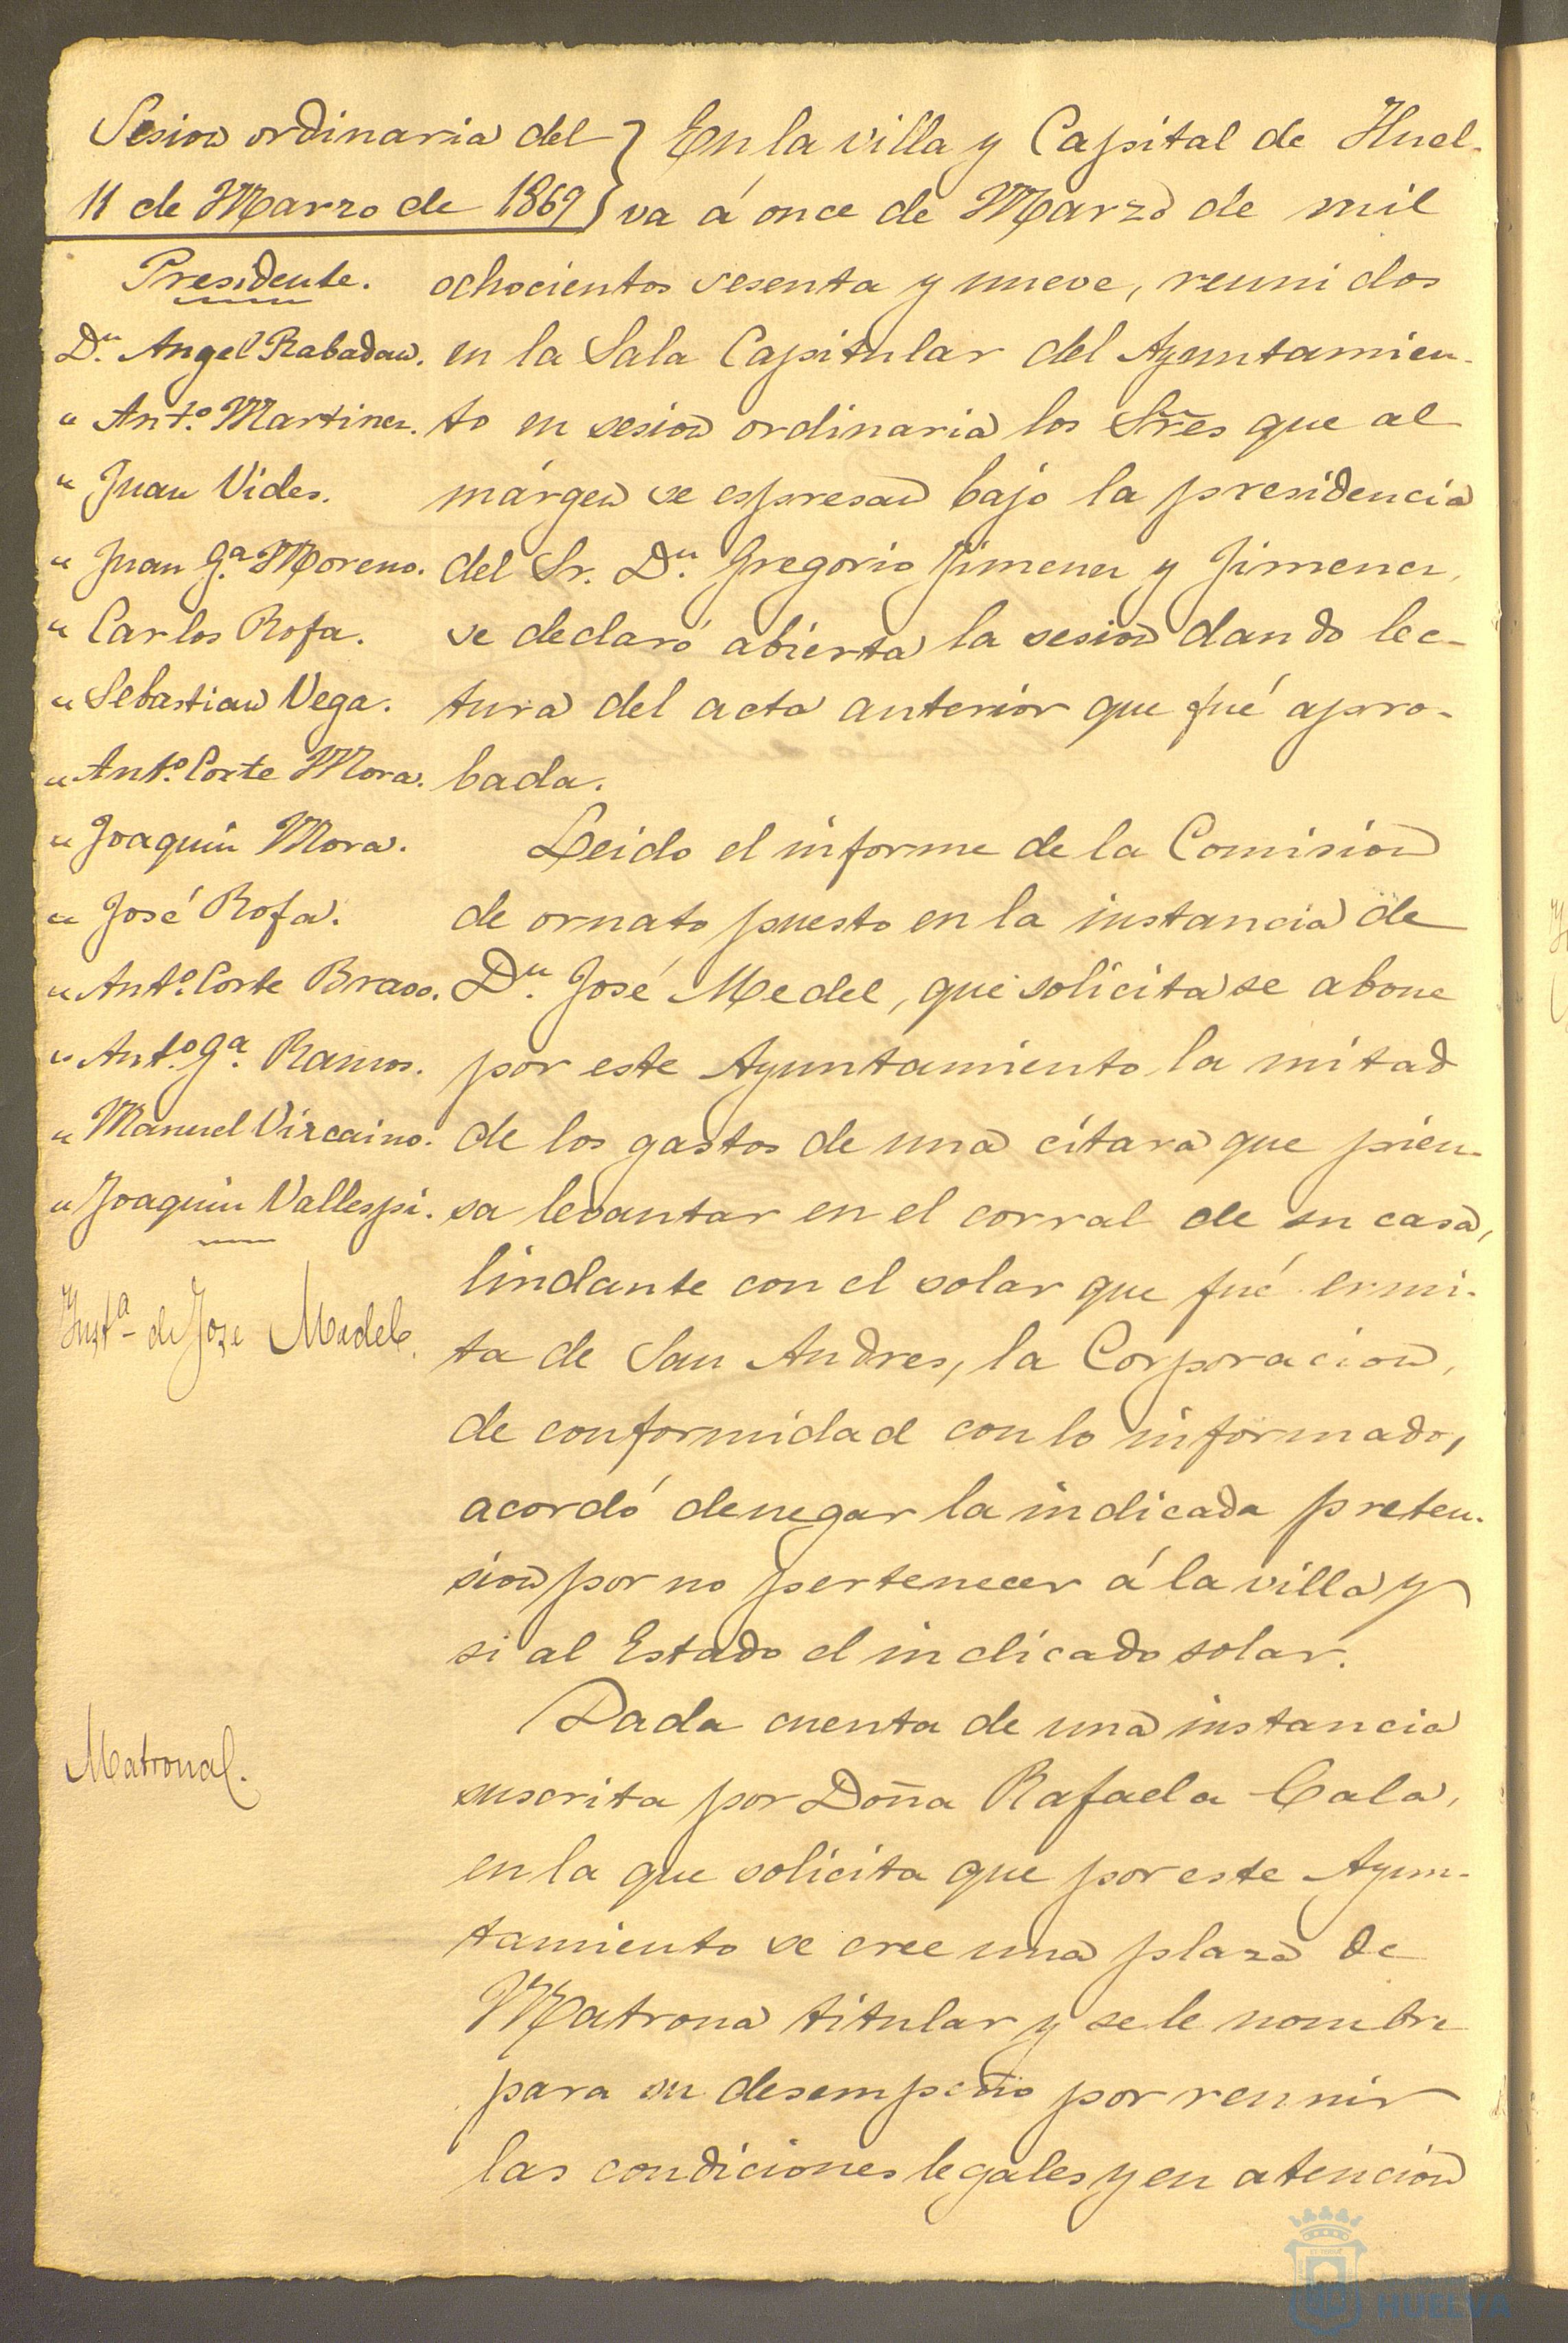 Sesion ordinaria del
11 de Marzo de 1869
Presidente.
Dn. Angel Rabadan.
" Anto. Martinez.
" Juan Vides.
" Juan Ga. Moreno.
" Carlos Rofa.
" Sebastian Vega.
" Anto. Corte Mora.
" Joaquin Mora.
" José Rofa.
" Anto. Corte Bravo.
" Anto. Ga. Ramos.
" Manuel Vizcaino.
" Joaquin Vallespi.
Insta. de Jose Medel.
Matrona
En la villa y Capital de Huel-
va á once de Marzo de mil
ochocientos sesenta y nueve, reunidos
en la Sala Capitular del Ayuntamien-
to en sesion ordinaria los Sres que al
márgen se espresan bajo la presidencia
del Sr. Dn. Gregorio Jimenez y Jimenez,
se declaró abierta la sesion dando lec-
tura del acta anterior que fué apro-
bada.
Leido el informe de la Comision
de ornato puesto en la instancia de
Dn. José Medel, que solicita se abone
por este Ayuntamiento la mitad
de los gastos de una citara que pien-
sa levantar en el corral de su casa,
lindante con el solar que fué ermi-
ta de San Andres, la Corporacion,
de conformidad con lo informado,
acordó denegar la indicada preten-
sion por no pertenecer á la villa y
si al Estado el indicado solar.
Dada cuenta de una instancia
suscrita por Doña Rafaela Cala,
en la que solicita que por este Ayun-
tamiento se cree una plaza de
Matrona titular y se le nombre
para su desempeño por reunir
las condiciones legales y en atención
HUELVA